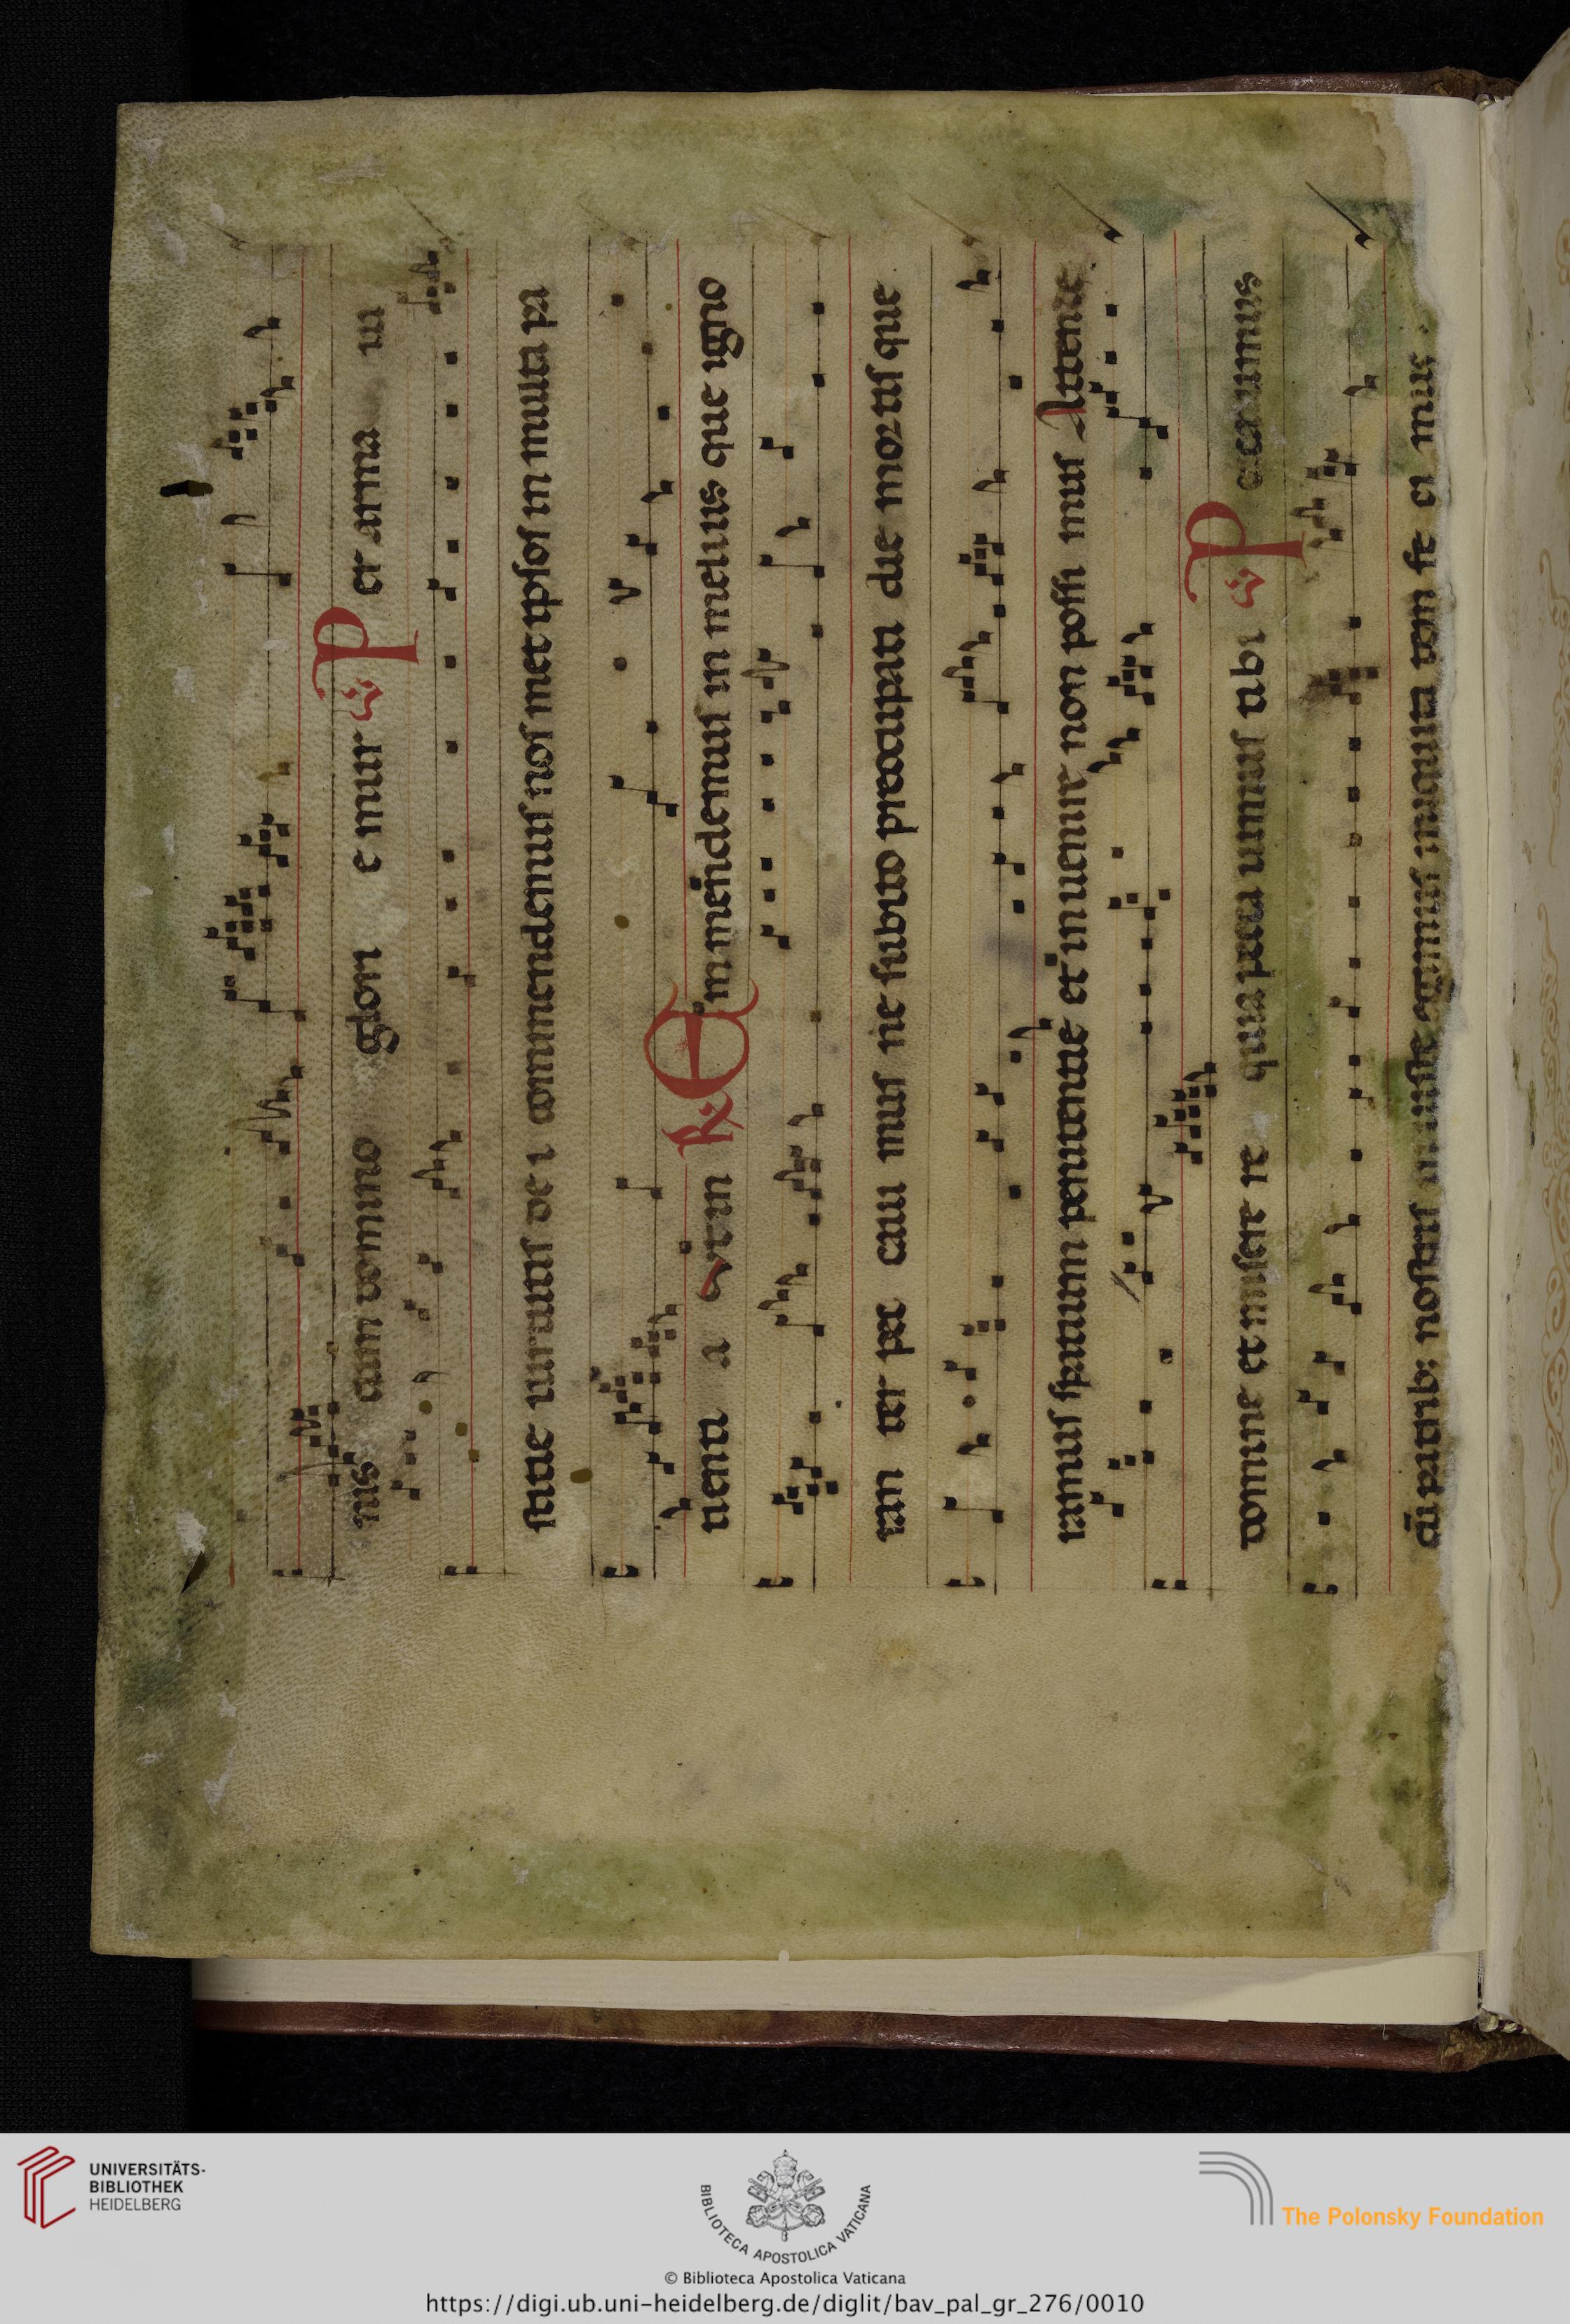 nis cum domino glori e mur ℣ Per arma iu
stitie uirtutis de i commendemus nos met ipsos in multa pa
tienti a Vtin ℟ Emmendemus in melius que igno
ran ter pec caui mus ne subito preocupati die mortis que
ramus spatium penitentie et inuenire non possi mus Attende
domine et misere re quia pecca uimus tibi ℣ Peccauimus
cū patrib; nostris iniuste egimus iniquita tem fe ci mus
UNIVERSITÄTS-
BIBLIOTHEK
HEIDELBERG
BIBLIOTECA APOSTOLICA VATICANA
The Polonsky Foundation
© Biblioteca Apostolica Vaticana
https://digi.ub.uni-heidelberg.de/diglit/bav_pal_gr_276/0010